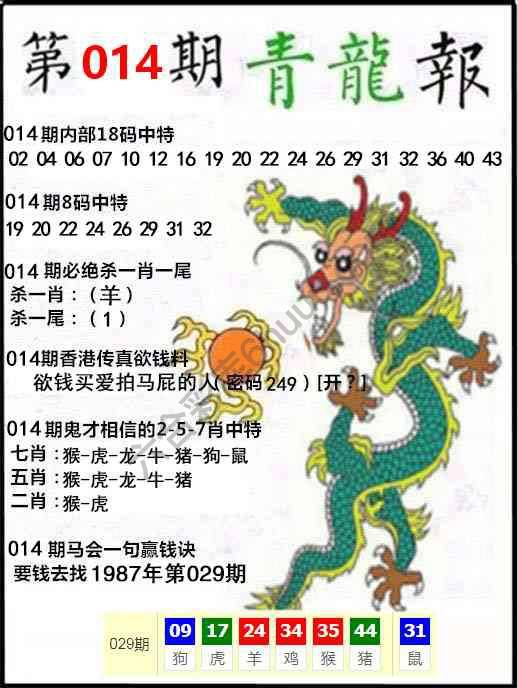 第014期 青龍報
014期内部18码中特
02 04 06 07 10 12 16 19 20 22 24 26 29 31 32 36 40 43
014期8码中特
19 20 22 24 26 29 31 32
014 期必绝杀一肖一尾
杀一肖：（羊）
杀一尾：（1）
014期香港传真欲钱料
欲钱买爱拍马屁的人(密码249) [开？]
014期鬼才相信的2-5-7肖中特
七肖 :猴-虎-龙-牛-猪-狗-鼠
五肖 :猴-虎-龙-牛-猪
二肖 :猴-虎
014 期马会一句赢钱诀
要钱去找1987年第029期
029期 09 17 24 34 35 44 31
狗 虎 羊 鸡 猴 猪 鼠